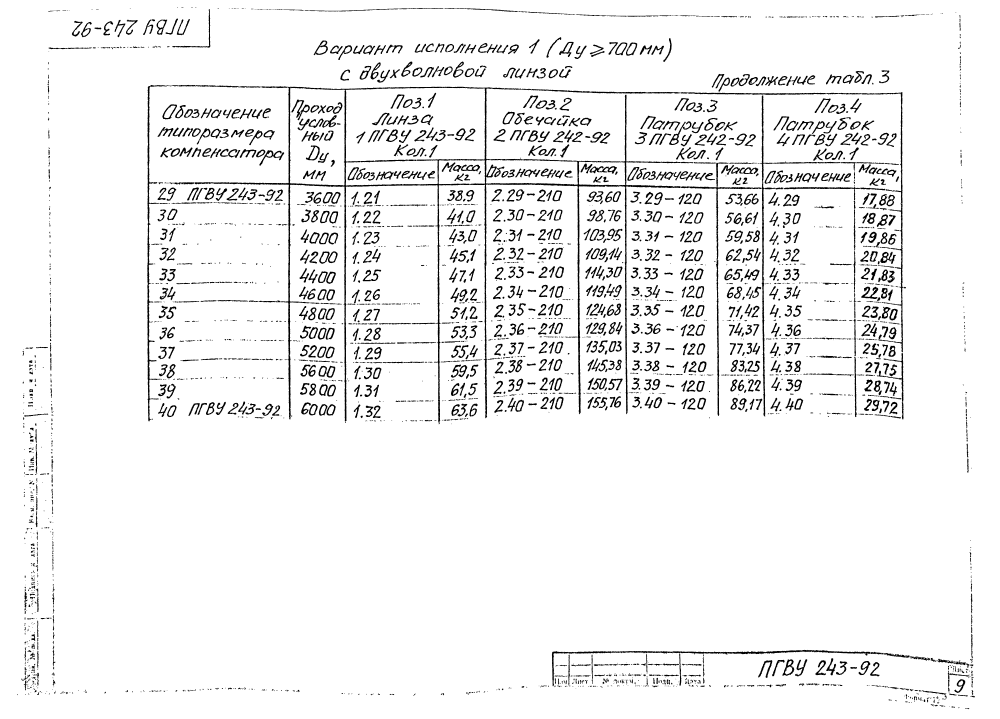 ПГВУ 243-92
Вариант исполнения 1 (Ду ≥ 700 мм)
с двухволновой линзой
Продолжение табл. 3
Обозначение типоразмера компенсатора | Проход условный Ду, мм | Поз.1 Линза 1 ПГВУ 243-92 Кол.1 | Поз.2 Обечайка 2 ПГВУ 242-92 Кол.1 | Поз.3 Патрубок 3 ПГВУ 242-92 Кол.1 | Поз.4 Патрубок 4 ПГВУ 242-92 Кол.1
Обозначение | Масса, кг | Обозначение | Масса, кг | Обозначение | Масса, кг | Обозначение | Масса, кг
29 ПГВУ 243-92 | 3600 | 1.21 | 38,9 | 2.29-210 | 93,60 | 3.29-120 | 53,66 | 4.29 | 17,88
30 | 3800 | 1.22 | 41,0 | 2.30-210 | 98,76 | 3.30-120 | 56,61 | 4.30 | 18,87
31 | 4000 | 1.23 | 43,0 | 2.31-210 | 103,95 | 3.31-120 | 59,58 | 4.31 | 19,86
32 | 4200 | 1.24 | 45,1 | 2.32-210 | 109,14 | 3.32-120 | 62,54 | 4.32 | 20,84
33 | 4400 | 1.25 | 47,1 | 2.33-210 | 114,30 | 3.33-120 | 65,49 | 4.33 | 21,83
34 | 4600 | 1.26 | 49,2 | 2.34-210 | 119,49 | 3.34-120 | 68,45 | 4.34 | 22,81
35 | 4800 | 1.27 | 51,2 | 2.35-210 | 124,68 | 3.35-120 | 71,42 | 4.35 | 23,80
36 | 5000 | 1.28 | 53,3 | 2.36-210 | 129,84 | 3.36-120 | 74,37 | 4.36 | 24,79
37 | 5200 | 1.29 | 55,4 | 2.37-210 | 135,03 | 3.37-120 | 77,34 | 4.37 | 25,78
38 | 5600 | 1.30 | 59,5 | 2.38-210 | 145,38 | 3.38-120 | 83,25 | 4.38 | 27,75
39 | 5800 | 1.31 | 61,5 | 2.39-210 | 150,57 | 3.39-120 | 86,22 | 4.39 | 28,74
40 ПГВУ 243-92 | 6000 | 1.32 | 63,6 | 2.40-210 | 155,76 | 3.40-120 | 89,17 | 4.40 | 29,72
ПГВУ 243-92
Лист
9
Изм Лист № докум. Подп. Дата